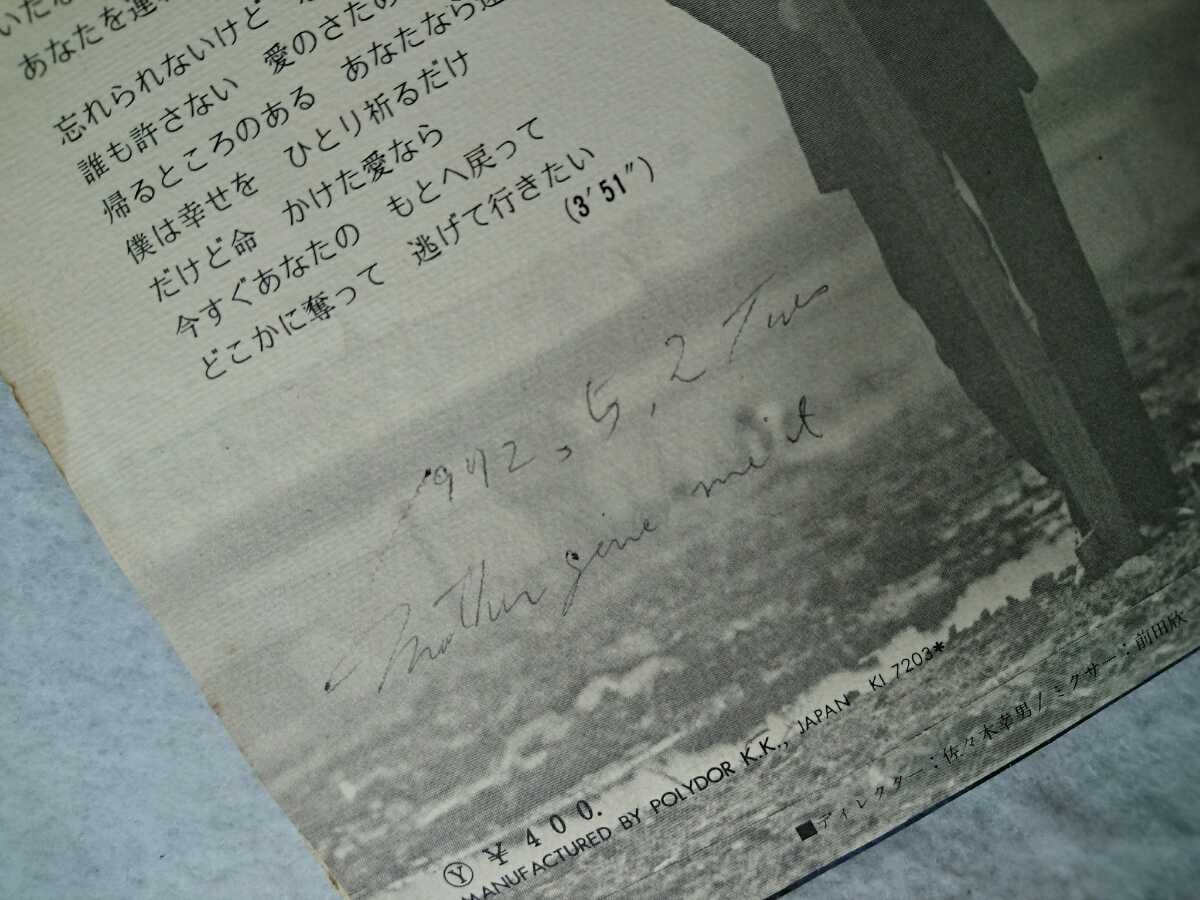 あなたを連れ
忘れられないけど
誰も許さない 愛のさため
帰るところのある あなたなら
僕は幸せを ひとり祈るだけ
だけど命 かけた愛なら
今すぐあなたの もとへ戻って
どこかに奪って 逃げて行きたい
(3′51″)
1972, 5, 2 Tues
Mother give me it
Ⓨ ¥400.
MANUFACTURED BY POLYDOR K.K., JAPAN KI 7203*
■ディレクター:佐々木幸男/ミクサー:前田欣